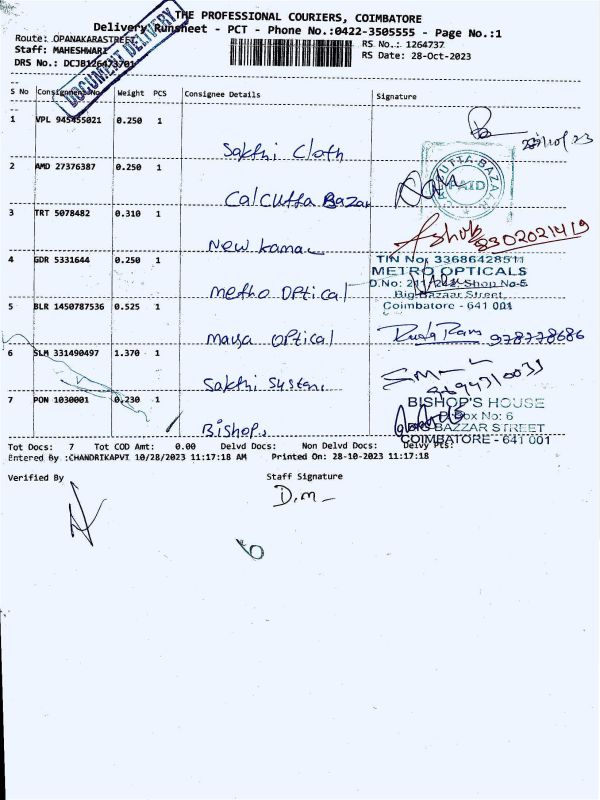 THE PROFESSIONAL COURIERS, COIMBATORE
Delivery Runsheet - PCT - Phone No.:0422-3505555 - Page No.:1
DOCUMENT DELIVERY
Route: OPANAKARASTREET
RS No.: 1264737
Staff: MAHESHWARI
RS Date: 28-Oct-2023
DRS No.: DCJB126473701
S No Consignment No Weight PCS Consignee Details Signature
1 VPL 945455021 0.250 1 Sakthi Cloth
2 AMD 27376387 0.250 1 Calcutta Bazar
CALCUTTA-BAZAAR
PAID
3 TRT 5078482 0.310 1 New kamal
Ashok
8302021419
4 GDR 5331644 0.250 1 metho optical
TIN No: 33686428511
METRO OPTICALS
Shop No-5
Big Bazaar Street,
Coimbatore - 641 001
5 BLR 1450787536 0.525 1 maya optical
978778686
6 SLM 331490497 1.370 1 Sakthi System
7 PON 1030001 0.230 1 Bishop
BISHOP'S HOUSE
Box No: 6
BIG BAZZAR STREET
COIMBATORE - 641 001
Tot Docs: 7 Tot COD Amt: 0.00 Delvd Docs: Non Delvd Docs: Delvy Pts:
Entered By :CHANDRIKAPVT 10/28/2023 11:17:18 AM Printed On: 28-10-2023 11:17:18
Verified By Staff Signature
D.m